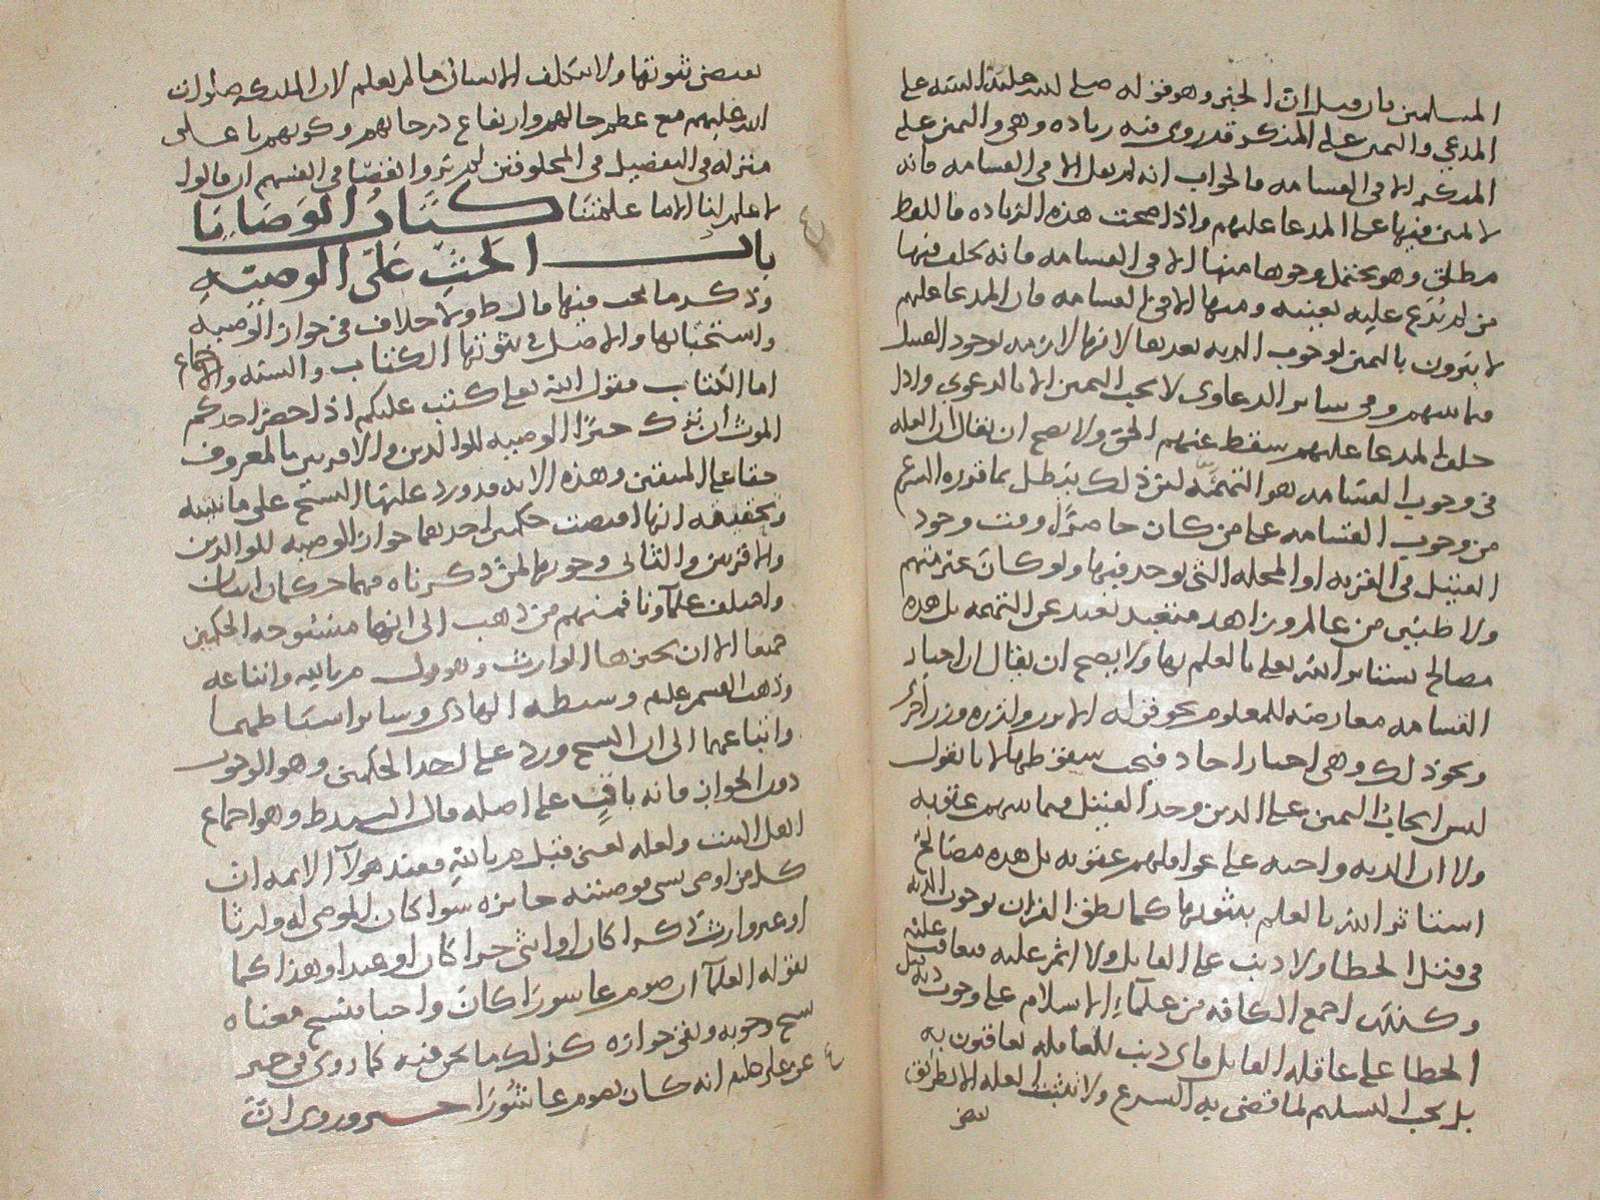 المسلمين فان قيل ان الخبر وهو قوله صلى الله عليه البينه على
المدعي واليمين على المنكر قد روي فيه زياده وهي واليمين على
المنكر الا في القسامه فالجواب انه لم يقل الا في القسامه فانه
لا يمين فيها على المدعا عليهم واذا صحت هذه الزياده فاللفظ
مطلق وهو يحتمل وجوها منها الا في القسامه فانه يحلف فيها
من لم يدع عليه بعينه ومنها الا في القسامه فان المدعا عليهم
لا يبرون باليمين لوجوب الديه بعدها لانها لازمه لوجود القتيل
فيما بينهم وفي سائر الدعاوى لا يجب اليمين الا بالدعوى واذا
حلف المدعا عليهم سقط عنهم الحق ولا يصح ان يقال ان العله
في وجوب القسامه هو التهمه لان ذلك يبطل بما قرره الشرع
من وجوب القسامه على من كان حاضرا وقت وجود
القتيل في القريه او المحله التي يوجد فيها ولو كان غيرمتهم
ولا ظنين من عالم وزاهد متعبد بعيد عن التهمه بل هذه
مصالح يستاثر الله تعالى بالعلم بها ولا يصح ان يقال ان اخبار
القسامه معارضه للمعلوم نحو قوله الا تزر وازره وزر اخرى
ونحو ذلك وهي اخبار احاد فيجب سقوطها لانا نقول
ليس ايجاب اليمين على الذين وجد القتيل فيما بينهم عقوبه
ولا ان الديه واجبه على عواقلهم عقوبه بل هذه مصالح
استاثر الله بالعلم بها كما نطق القران بوجوب الديه
في قتل الخطا ولا ذنب على القاتل ولا اثم عليه فيعاقب عليه
وكذلك اجمع الكافه من علماء الاسلام على وجوب ديه قتل
الخطا على عاقله القاتل فاي ذنب للعاقله يعاقبون به
بل يجب التسليم لما قضى به الشرع ولا تثبت العله الا بطريق
بعض
يقتضي ثبوتها ولا يتكلف الانسان مالم يعلم لان الملائكه صلوات
الله عليهم مع عظم حالهم وارتفاع درجاتهم وكونهم باعلى
منزله في التفضيل في المخلوقين لم يروا نقصا في انفسهم ان قالوا
لا علم لنا الا ما علمتنا كتاب الوصايا
باب الحث على الوصيه
وذكر ما يجب فيها قال ط ولا خلاف في جواز الوصيه
واستحبابها والاصل في ثبوتها الكتاب والسنه والاجماع
اما الكتاب فقول الله تعالى كتب عليكم اذا حضر احدكم
الموت ان ترك خيرا الوصيه للوالدين والاقربين بالمعروف
حقا على المتقين وهذه الايه قد ورد عليها النسخ على ما نبينه
وتحقيقه انها اقتضت حكمين احدهما جواز الوصيه للوالدين
والاقربين والثاني وجوبها لمن ذكرناه فهما حكمان اثنان
واختلف علماونا فمنهم من ذهب الى انها منسوخه الحكمين
جميعا الا ان يجيزها الوارث وهو قول م بالله واتباعه
وذهب القسم عليه وسبطه الهادي وسائر اسباطهما
واتباعهما الى ان النسخ ورد على احد الحكمين وهو الوجوب
دون الجواز فانه باق على اصله قال السيد ط وهو اجماع
اهل البيت ولعله يعني قبل م بالله فعند هولاء الايمه ان
كل من اوصى بشي فوصيته جايزه سوا كان الموصى له وارثا
او غير وارث ذكرا كان او انثى حرا كان او عبدا وهذا كما
يقوله العلماء ان صوم عاشورا كان واجبا فنسخ معناه
نسخ وجوبه وبقي جوازه كذلك ما نحن فيه كما روي في خبر
عن علي عليه انه كان يصوم عاشورا خبر وروي ان